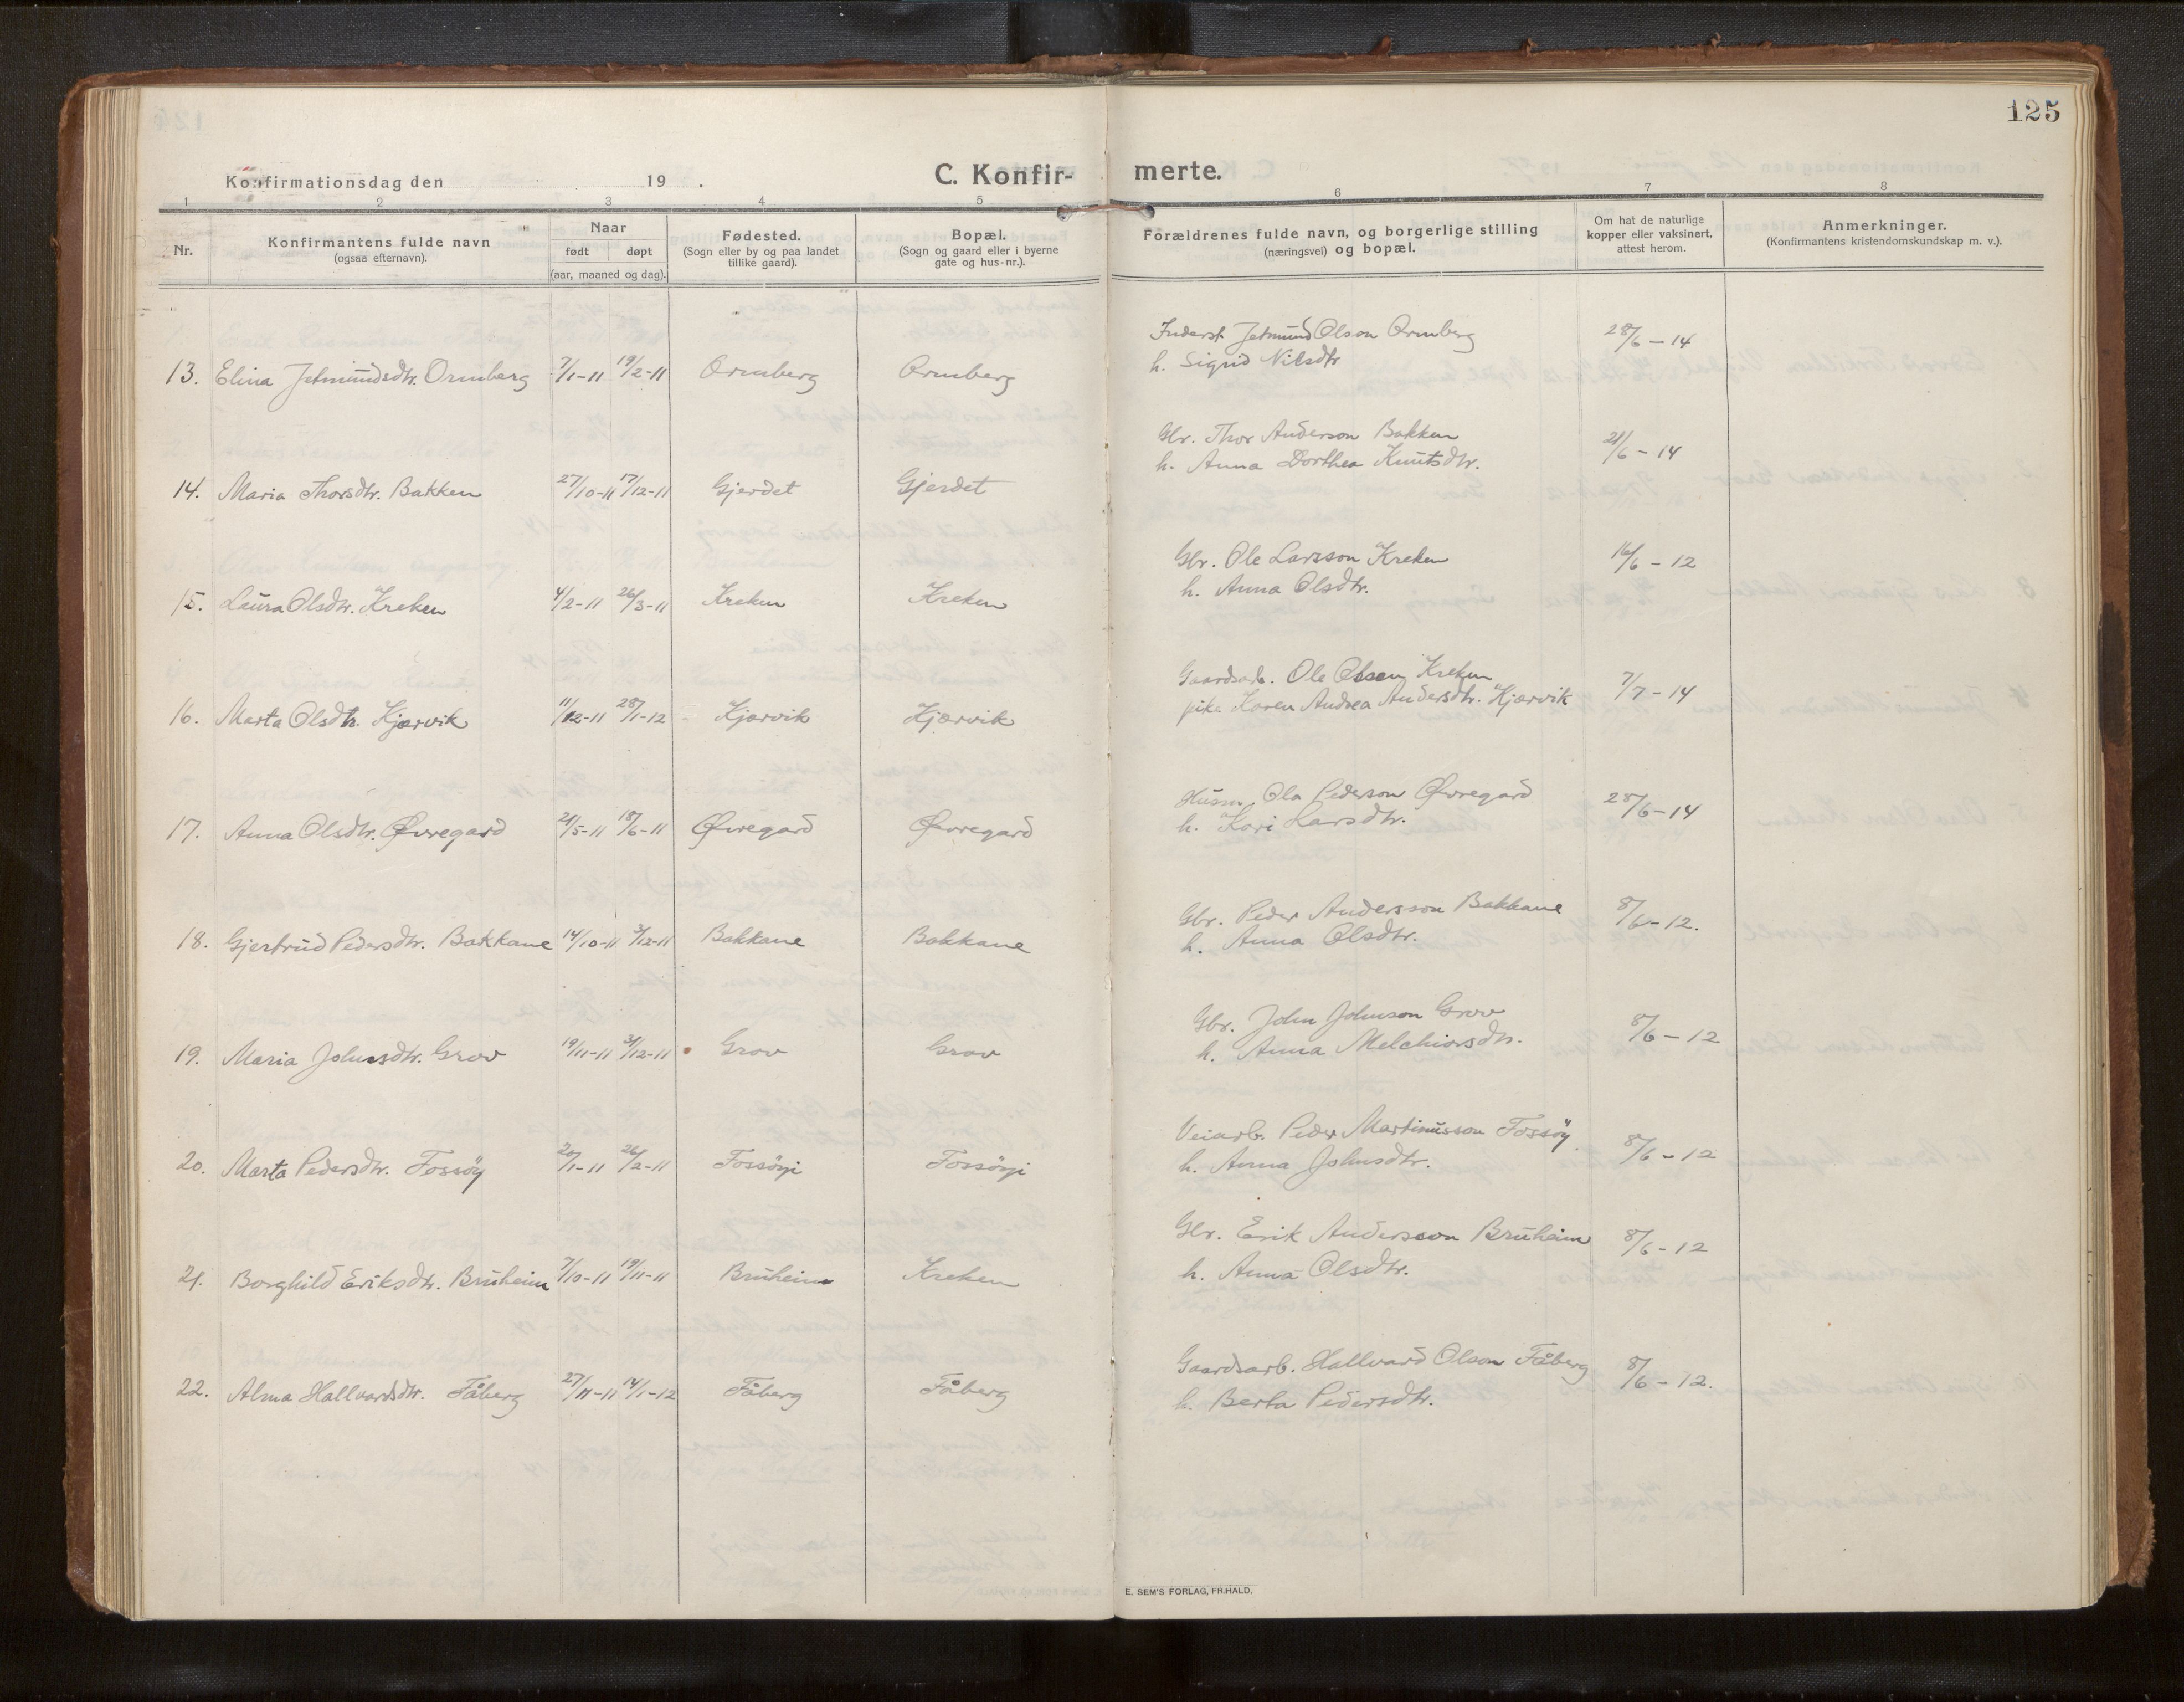 125
Konfirmationsdag den 19 .
C. Konfir- merte.
1 2 3 4 5 6 7 8
Nr.
Konfirmantens fulde navn
(ogsaa efternavn).
Naar
født døpt
(aar, maaned og dag).
Fødested.
(Sogn eller by og paa landet
tillike gaard).
Bopæl.
(Sogn og gaard eller i byerne
gate og hus-nr.).
Forældrenes fulde navn, og borgerlige stilling
(næringsvei) og bopæl.
Om hat de naturlige
kopper eller vaksinert,
attest herom.
Anmerkninger.
(Konfirmantens kristendomskundskap m. v.).
Inderst Jetmund Olson Ormberg 28/6 - 14
h. Sigrid Nilsdtr.
13. Elina Jetmundsdtr. Ormberg 7/1-11 19/2-11 Ormberg Ormberg
Gbr. Thor Anderson Bakken 21/6 - 14
h. Anna Dorthea Knutsdtr.
14. Maria Thorsdtr. Bakken 27/10-11 17/12-11 Gjerdet Gjerdet
Gbr. Ole Larsson Kreken 16/6 - 12
h. Anna Olsdtr.
15. Laura Olsdtr. Kreken 4/2-11 26/3-11 Kreken Kreken
Gaardsarb. Ole Olsen Kreken 7/7-14
pike Karen Andrea Andersdtr. Kjærvik
16. Marta Olsdtr. Kjærvik 11/12-11 28/1-12 Kjærvik Kjærvik
Husm. Ola Pederson Øvregard 28/6-14
h. Kari Larsdtr.
17. Anna Olsdtr. Øvregard 21/5-11 18/6-11 Øvregard Øvregard
Gbr. Peder Andersson Bakkane 8/6-12.
h. Anna Olsdtr.
18. Gjertrud Pedersdtr. Bakkane 14/10-11 3/12-11 Bakkane Bakkane
Gbr. John Johnson Grov 8/6 - 12
h. Anna Melchiorsdtr.
19. Maria Johnsdtr. Grov 19/11-11 31/12-11 Grov Grov
Veiarb. Peder Martinusson Fossöy 8/6 - 12
h. Anna Johnsdtr.
20. Marta Pedersdtr. Fossöy 20/1-11 26/2-11 Fossöyi Fossöyi
Gbr. Erik Andersson Bruheim 8/6-12
h. Anna Olsdtr.
21. Borghild Eriksdtr. Bruheim 7/10-11 19/11-11 Bruheim Kreken
Gaardsarb. Hallvard Olson Fåberg 8/6 - 12.
h. Berta Pedersdtr.
22. Alma Hallvardsdtr. Fåberg 27/11-11 14/1-12 Fåberg Fåberg
E. SEM'S FORLAG, FR.HALD.